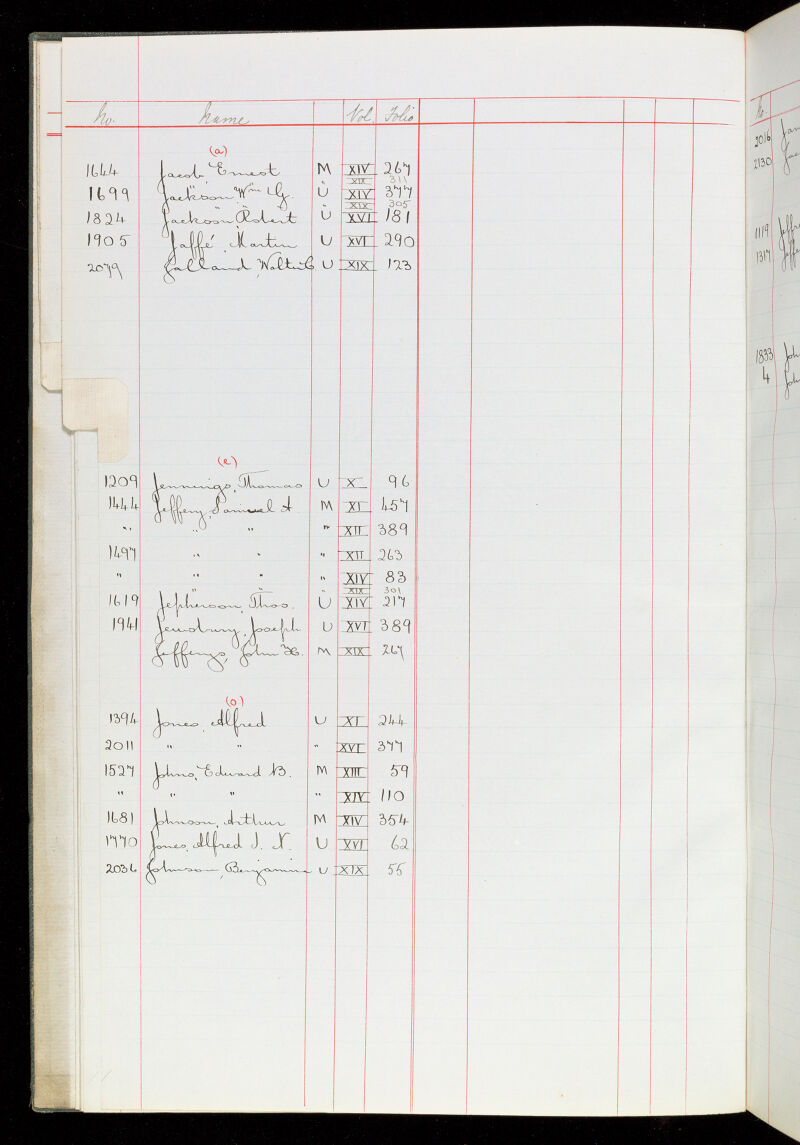 No. Name Vol Folio
(a)
1644 Jacob, Ernest M XIV 267
" XIX 311
1699 Jackson, Wm G. U XIV 377
" " " XIX 305
1824 Jackson, Robert U XVI 181
1905 Jaffé, Martin U XVI 290
2079 Jalland, Walter C U XIX 123
(e)
1209 Jennings, Thomas U X 96
1444 Jeffery, Samuel A M XI 457
" " " " XII 389
1497 " " " XII 263
" " " " XIV 83
" " " XIX 301
1619 Jepherson, Thos. U XIV 217
1941 Jewsbury, Joseph U XVI 389
Jefferys, John H. M XIX 267
(o)
1394 Jones, Alfred U XI 244
2011 " " " XVI 377
1527 Johns, Edward B. M XIII 59
" " " " XIV 110
1681 Johnson, Arthur M XIV 354
1770 Jones, Alfred J. N. U XVI 62
2036 Johnson, Benjamin U XIX 55
No
2016
2130
1119
1317
1833
4